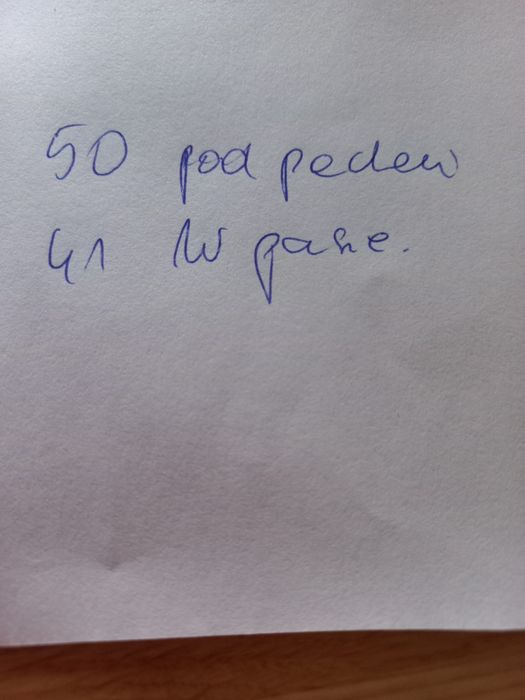 50 pod pachew
41 W pasie.